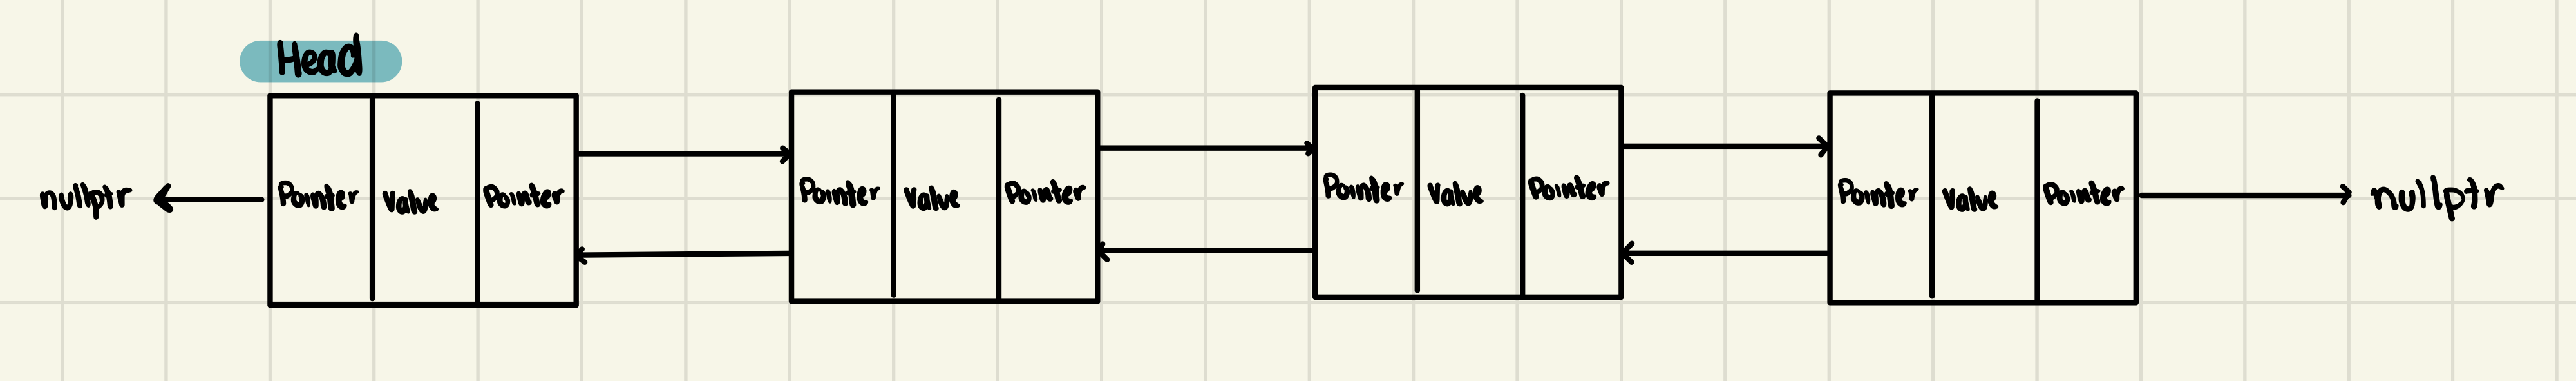 Head
nullptr Pointer Value Pointer Pointer Value Pointer Pointer Value Pointer Pointer Value Pointer nullptr